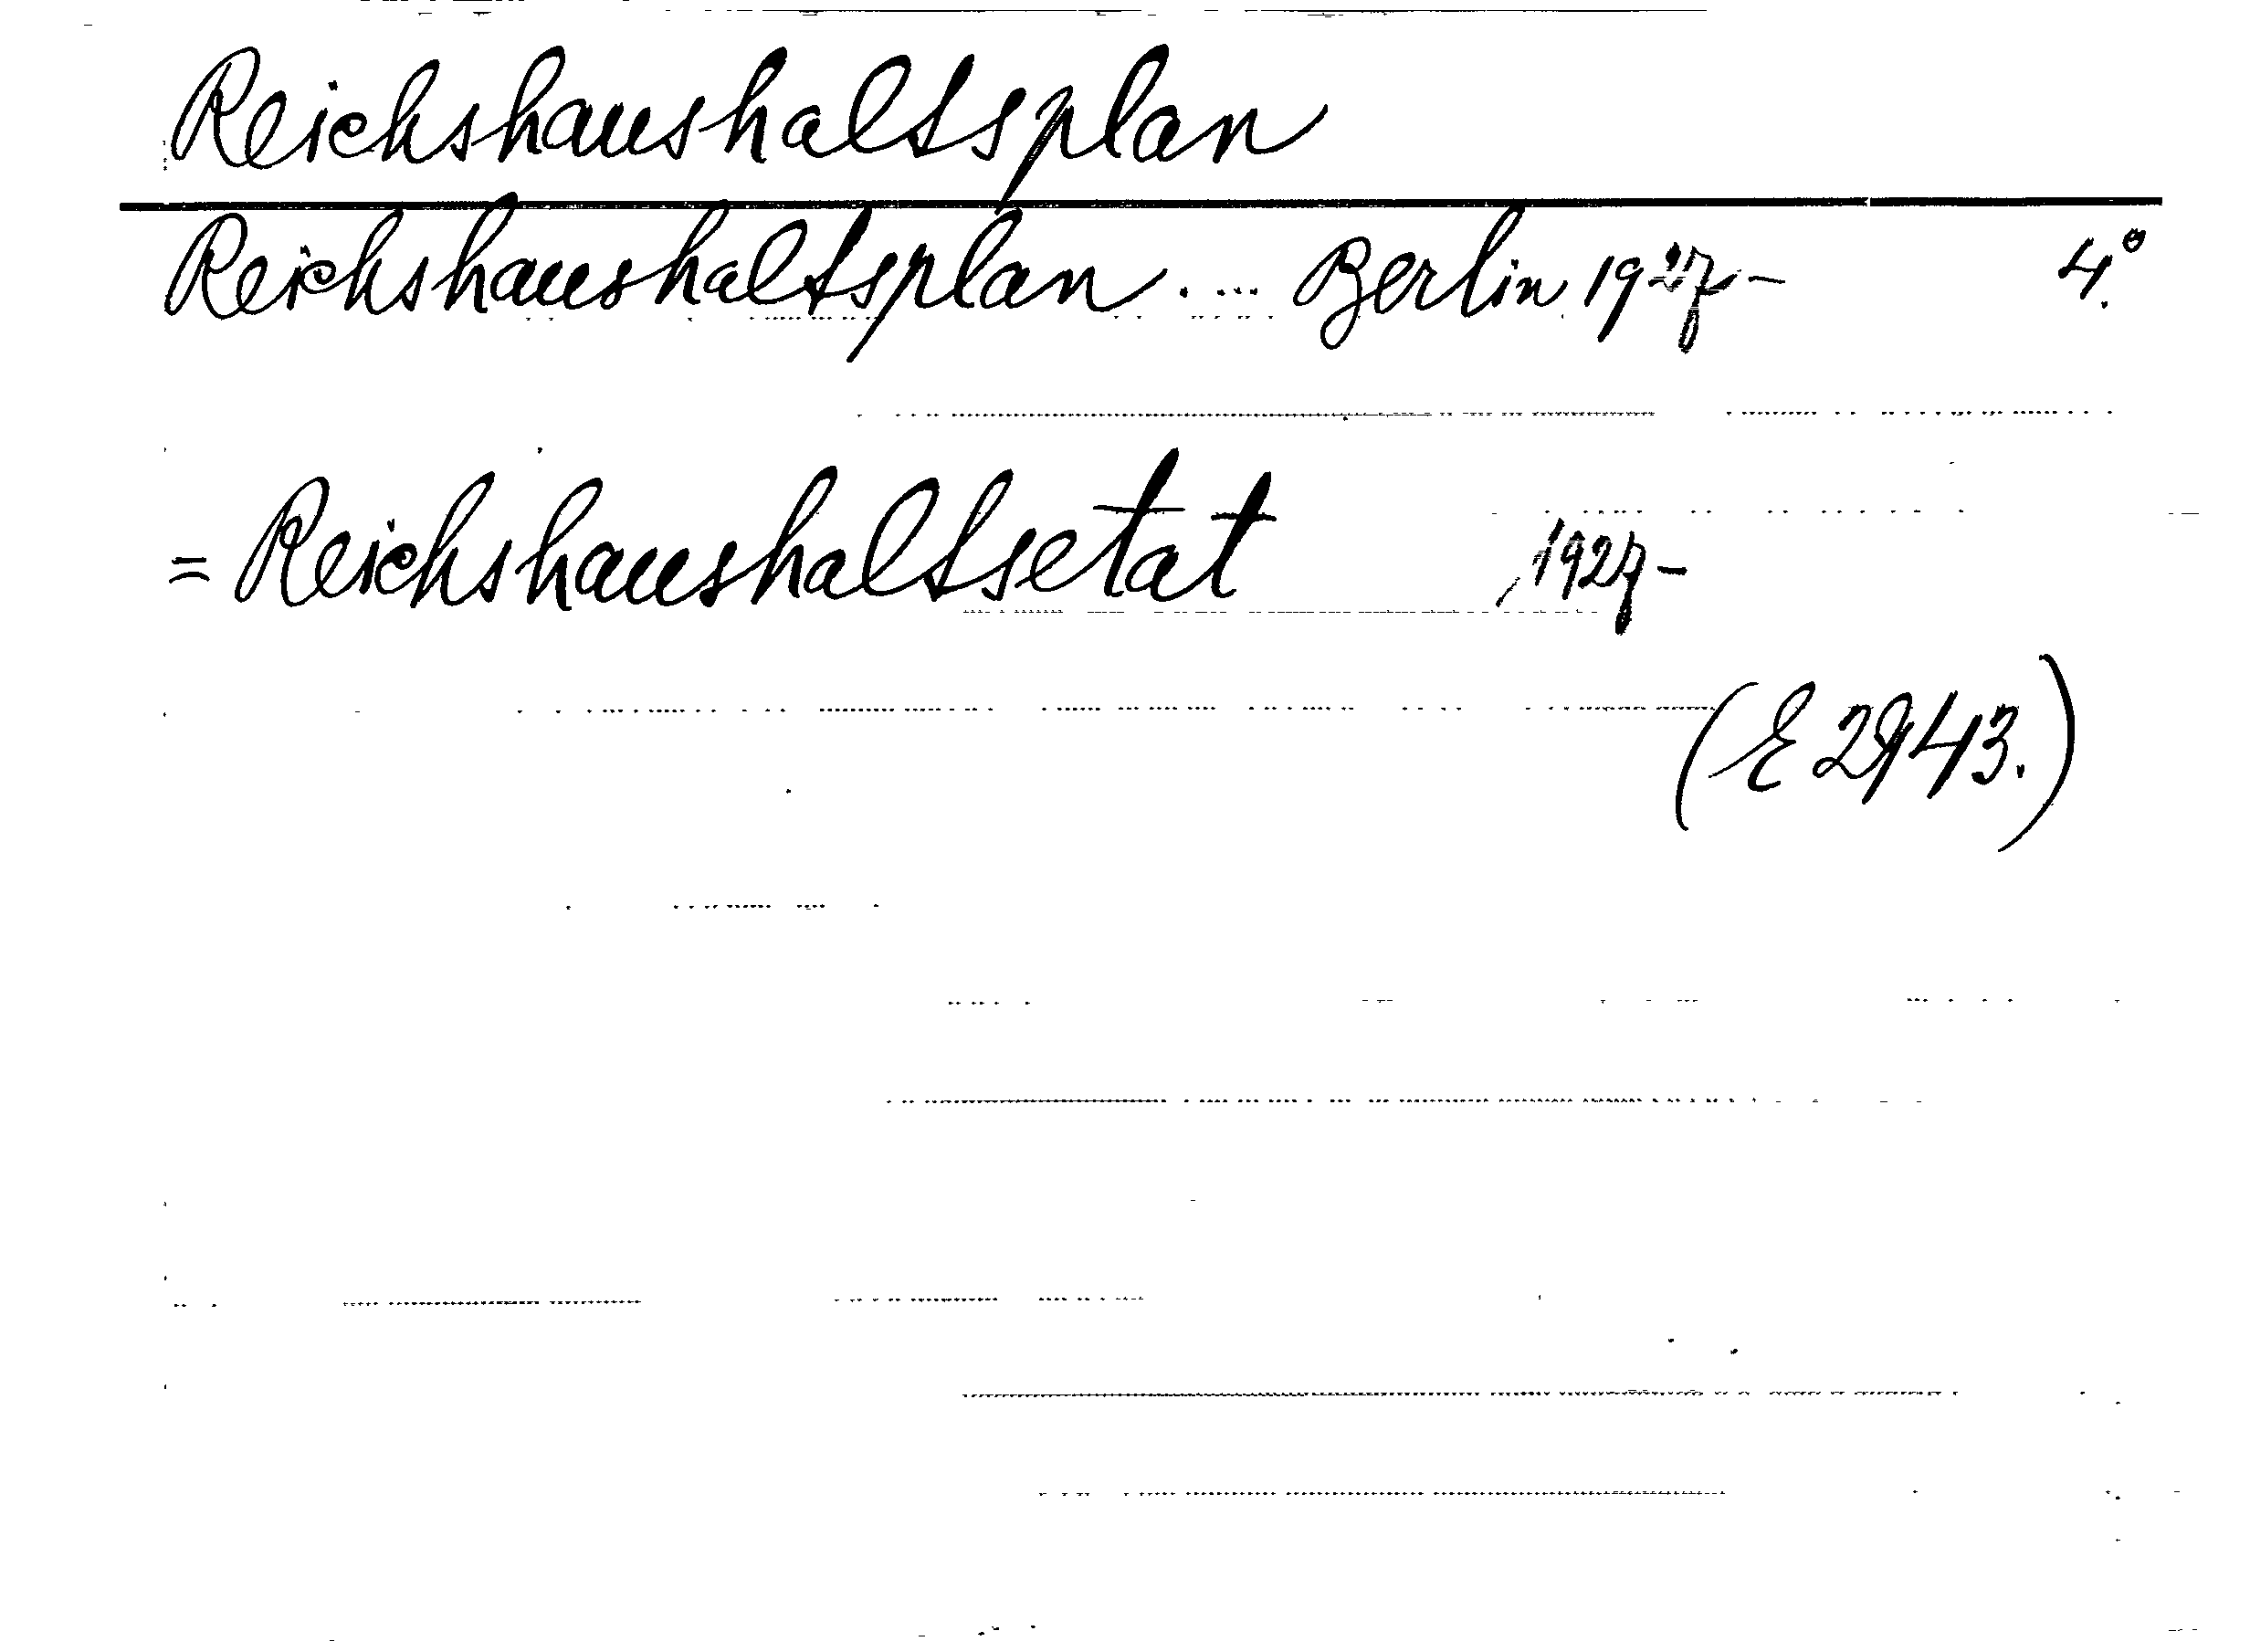 Reichshaushaltsplan
Reichshaushaltsplan. ... Berlin 1927- 4.°
= Reichshaushaltsetat 1927-
(E 2943.)